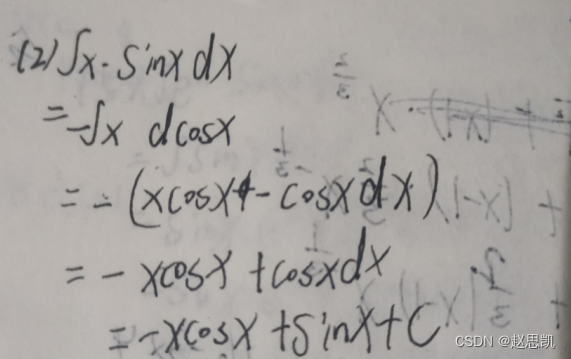 (2) ∫x·sinx dx
= -∫x dcosx
= -(xcosx - cosx dx)
= -xcosx + cosxdx
= -xcosx + sinx + C
CSDN @赵思凯